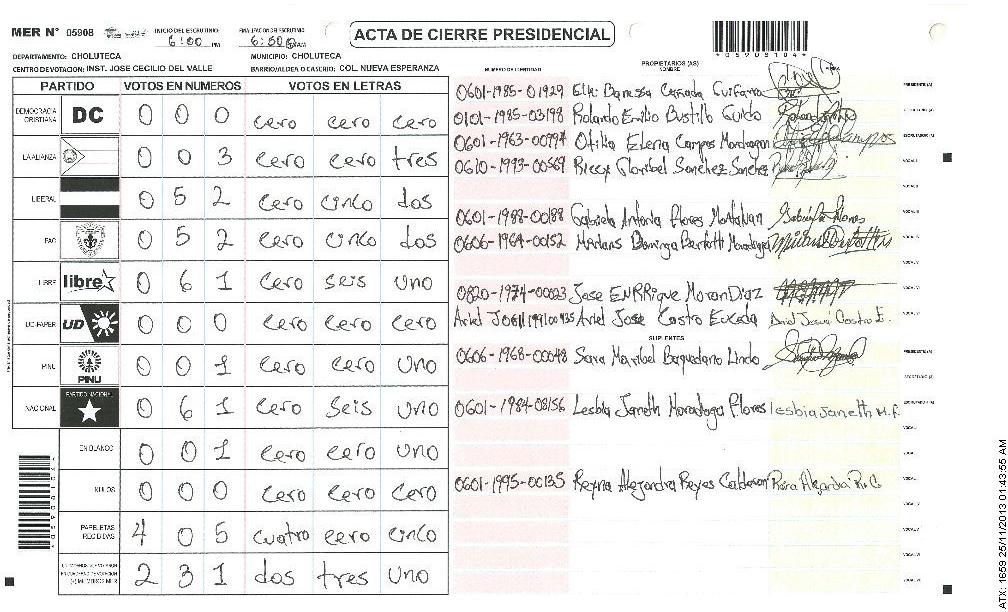 MER N° 05908 INICIO DEL ESCRUTINIO: 6:00 PM FINALIZACION DEL ESCRUTINIO 6:50 ACTA DE CIERRE PRESIDENCIAL *05908104*
DEPARTAMENTO: CHOLUTECA MUNICIPIO: CHOLUTECA
CENTRO DE VOTACION: INST. JOSE CECILIO DEL VALLE BARRIO/ALDEA O CASERIO: COL. NUEVA ESPERANZA
NUMERO DE IDENTIDAD PROPIETARIOS (AS) NOMBRE FIRMA
PARTIDO VOTOS EN NUMEROS VOTOS EN LETRAS
DEMOCRACIA CRISTIANA DC 0 0 0 cero cero cero
LA ALIANZA 0 0 3 cero cero tres
LIBERAL 0 5 2 cero cinco dos
PAC 0 5 2 cero cinco dos
LIBRE libre 0 6 1 cero seis uno
UD-FAPER UD 0 0 0 cero cero cero
PINU PINU 0 0 1 cero cero uno
NACIONAL PARTIDO NACIONAL 0 6 1 cero seis uno
EN BLANCO 0 0 1 cero cero uno
NULOS 0 0 0 cero cero cero
PAPELETAS RECIBIDAS 4 0 5 cuatro cero cinco
(+) MIEMBROS MER 2 3 1 dos tres uno
0601-1985-01929 PRESIDENTE (A)
0101-1985-03198 Rolando Emilio Bustillo Guido SECRETARIO (A)
0601-1963-00994 Otilia Elena Campos Mondragon ESCRUTADOR (A)
0610-1993-00569 Sanchez Sanchez VOCAL I
VOCAL II
0601-1988-00188 Gabriela Antonia Flores Montalvan VOCAL III
0606-1964-00152 VOCAL IV
VOCAL V
0820-1974-00023 Jose ENRRique Moran Diaz VOCAL VI
Ariel Jose Castro
SUPLENTES
0606-1968-00048 Sara Maribel Baquedano Lindo PRESIDENTE (A)
SECRETARIO (A)
0601-1984-08156 Lesbia Janeth Moradoga Flores lesbia Janeth M. F. ESCRUTADOR (A)
VOCAL I
VOCAL II
0601-1995-00135 Reyna Alejandra Reyes Calderon VOCAL III
VOCAL IV
VOCAL V
VOCAL VI
VOCAL VII
ATX: 1659 25/11/2013 01:43:55 AM